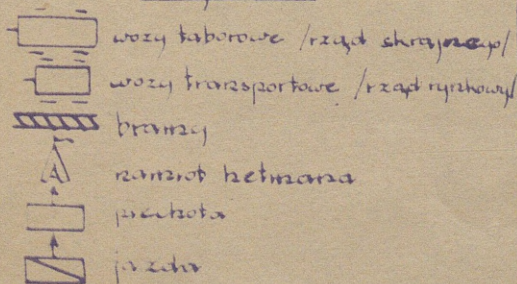 wozy taborowe /rząd skrajnego/
wozy transportowe /rząd rynkowy/
bramy
namiot hetmana
piechota
jazda